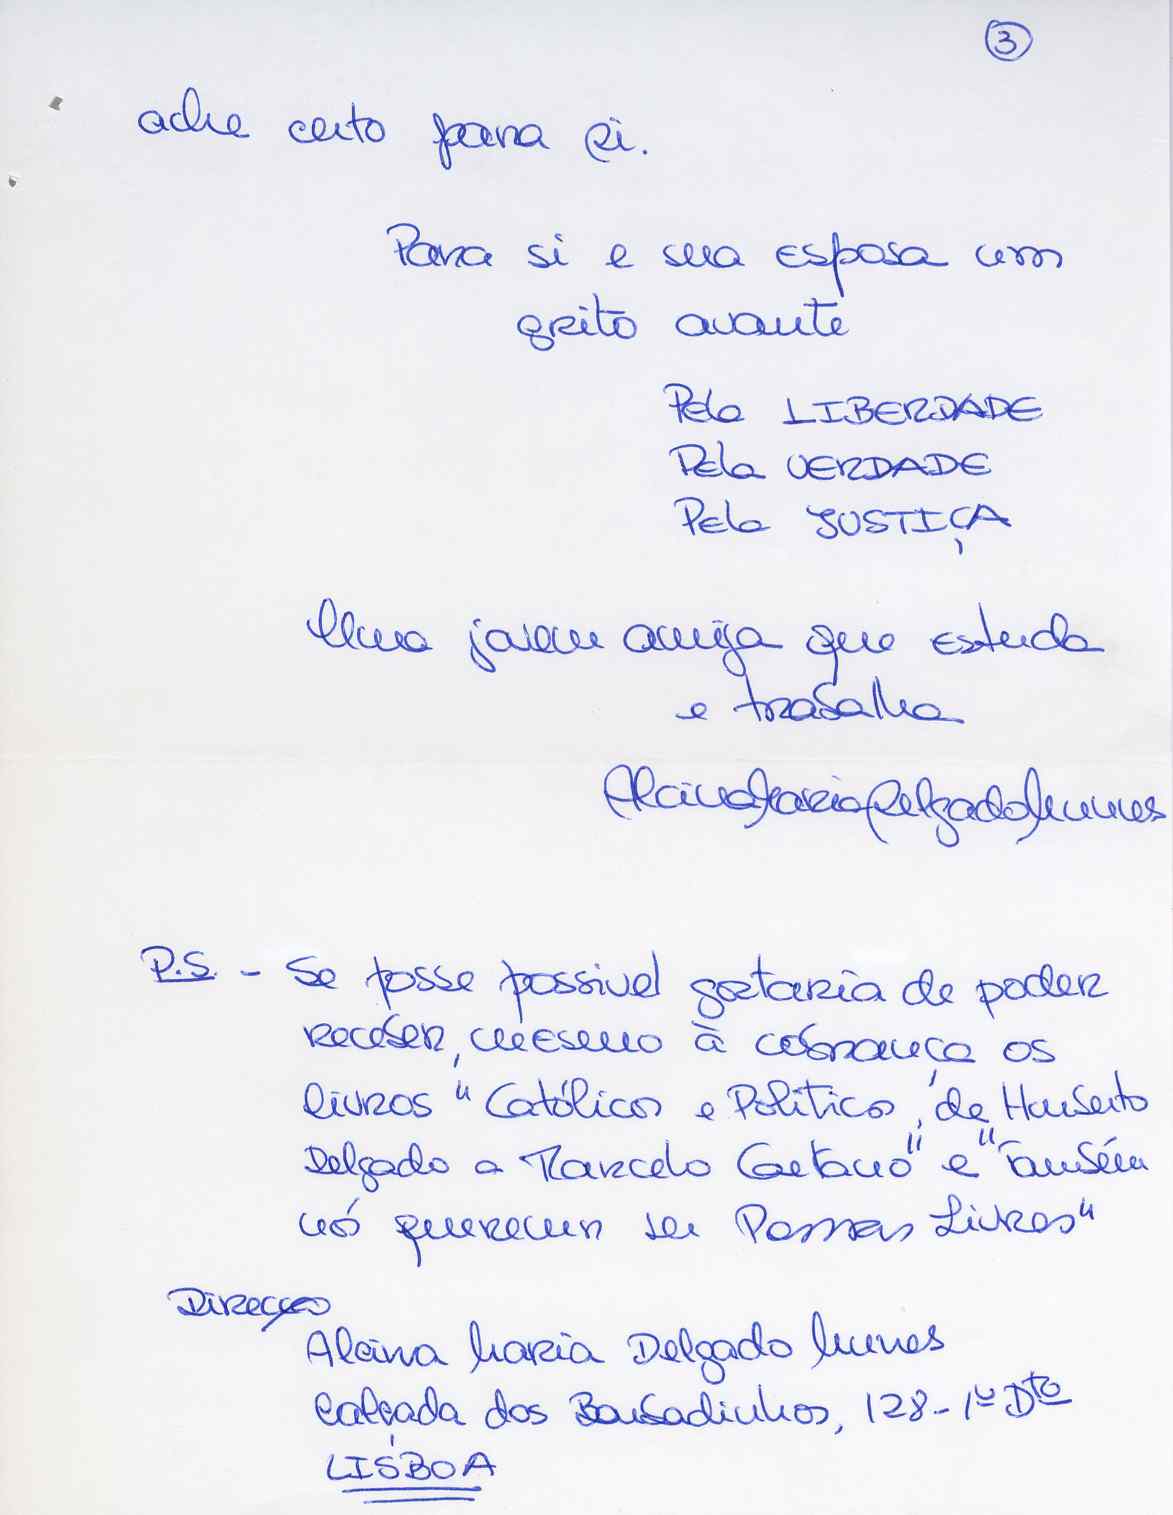 3
ache certo para si.
Para si e sua esposa um
grito avante
Pela LIBERDADE
Pela VERDADE
Pela JUSTIÇA
Uma jovem amiga que estuda
e trabalha
Alcina Maria Delgado Nunes
P.S. - Se fosse possivel gostaria de poder
receber, mesmo à cobrança os
livros "Católicos e Politica, de Humberto
Delgado a Marcelo Caetano" e "Também
nós queremos ser Pessoas Livres"
Direcção
Alcina Maria Delgado Nunes
Calçada dos Barbadinhos, 128-1º Dto
LISBOA